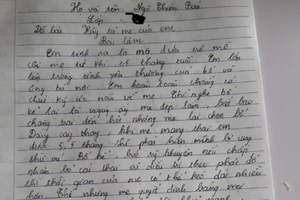 Họ và tên: Ngô Thiên Bảo
Lớp
Đề bài: Hãy tả mẹ của em
Bài làm
Em sinh ra là một đứa trẻ mồ
côi mẹ từ khi 15 tháng tuổi. Em lớn
lên trong tình yêu thương của bố và
ông bà nội. Em hoàn toàn chưa có
chút ký ức nào về mẹ. Em nghe bố
kể lại, là ngày ấy mẹ đẹp lắm, biết bao
chàng trai đến hỏi nhưng mẹ lại chọn bố
Đắng cay thay, khi mẹ mang thai em
được 5,5 tháng thì phát hiện mình bị ung
thư vú. Bố kể, bác sỹ khuyên nếu chấp
nhận bỏ cái thai và điều trị theo phác đồ
thì thời gian của mẹ có thể kéo dài nhiều
hơn. Thế nhưng mẹ quyết định mang